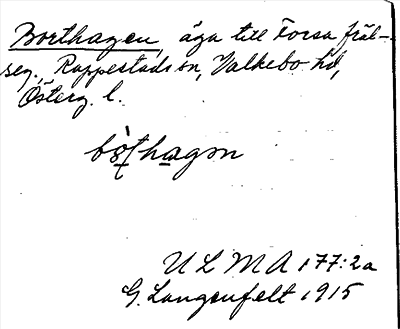 Borthagen, äga till Forsa fräl-
seg., Rappestads sn, Valkebo hd,
Österg. l.
bo̯t̠hagən
ULMA 177:2a
G. Langenfelt 1915